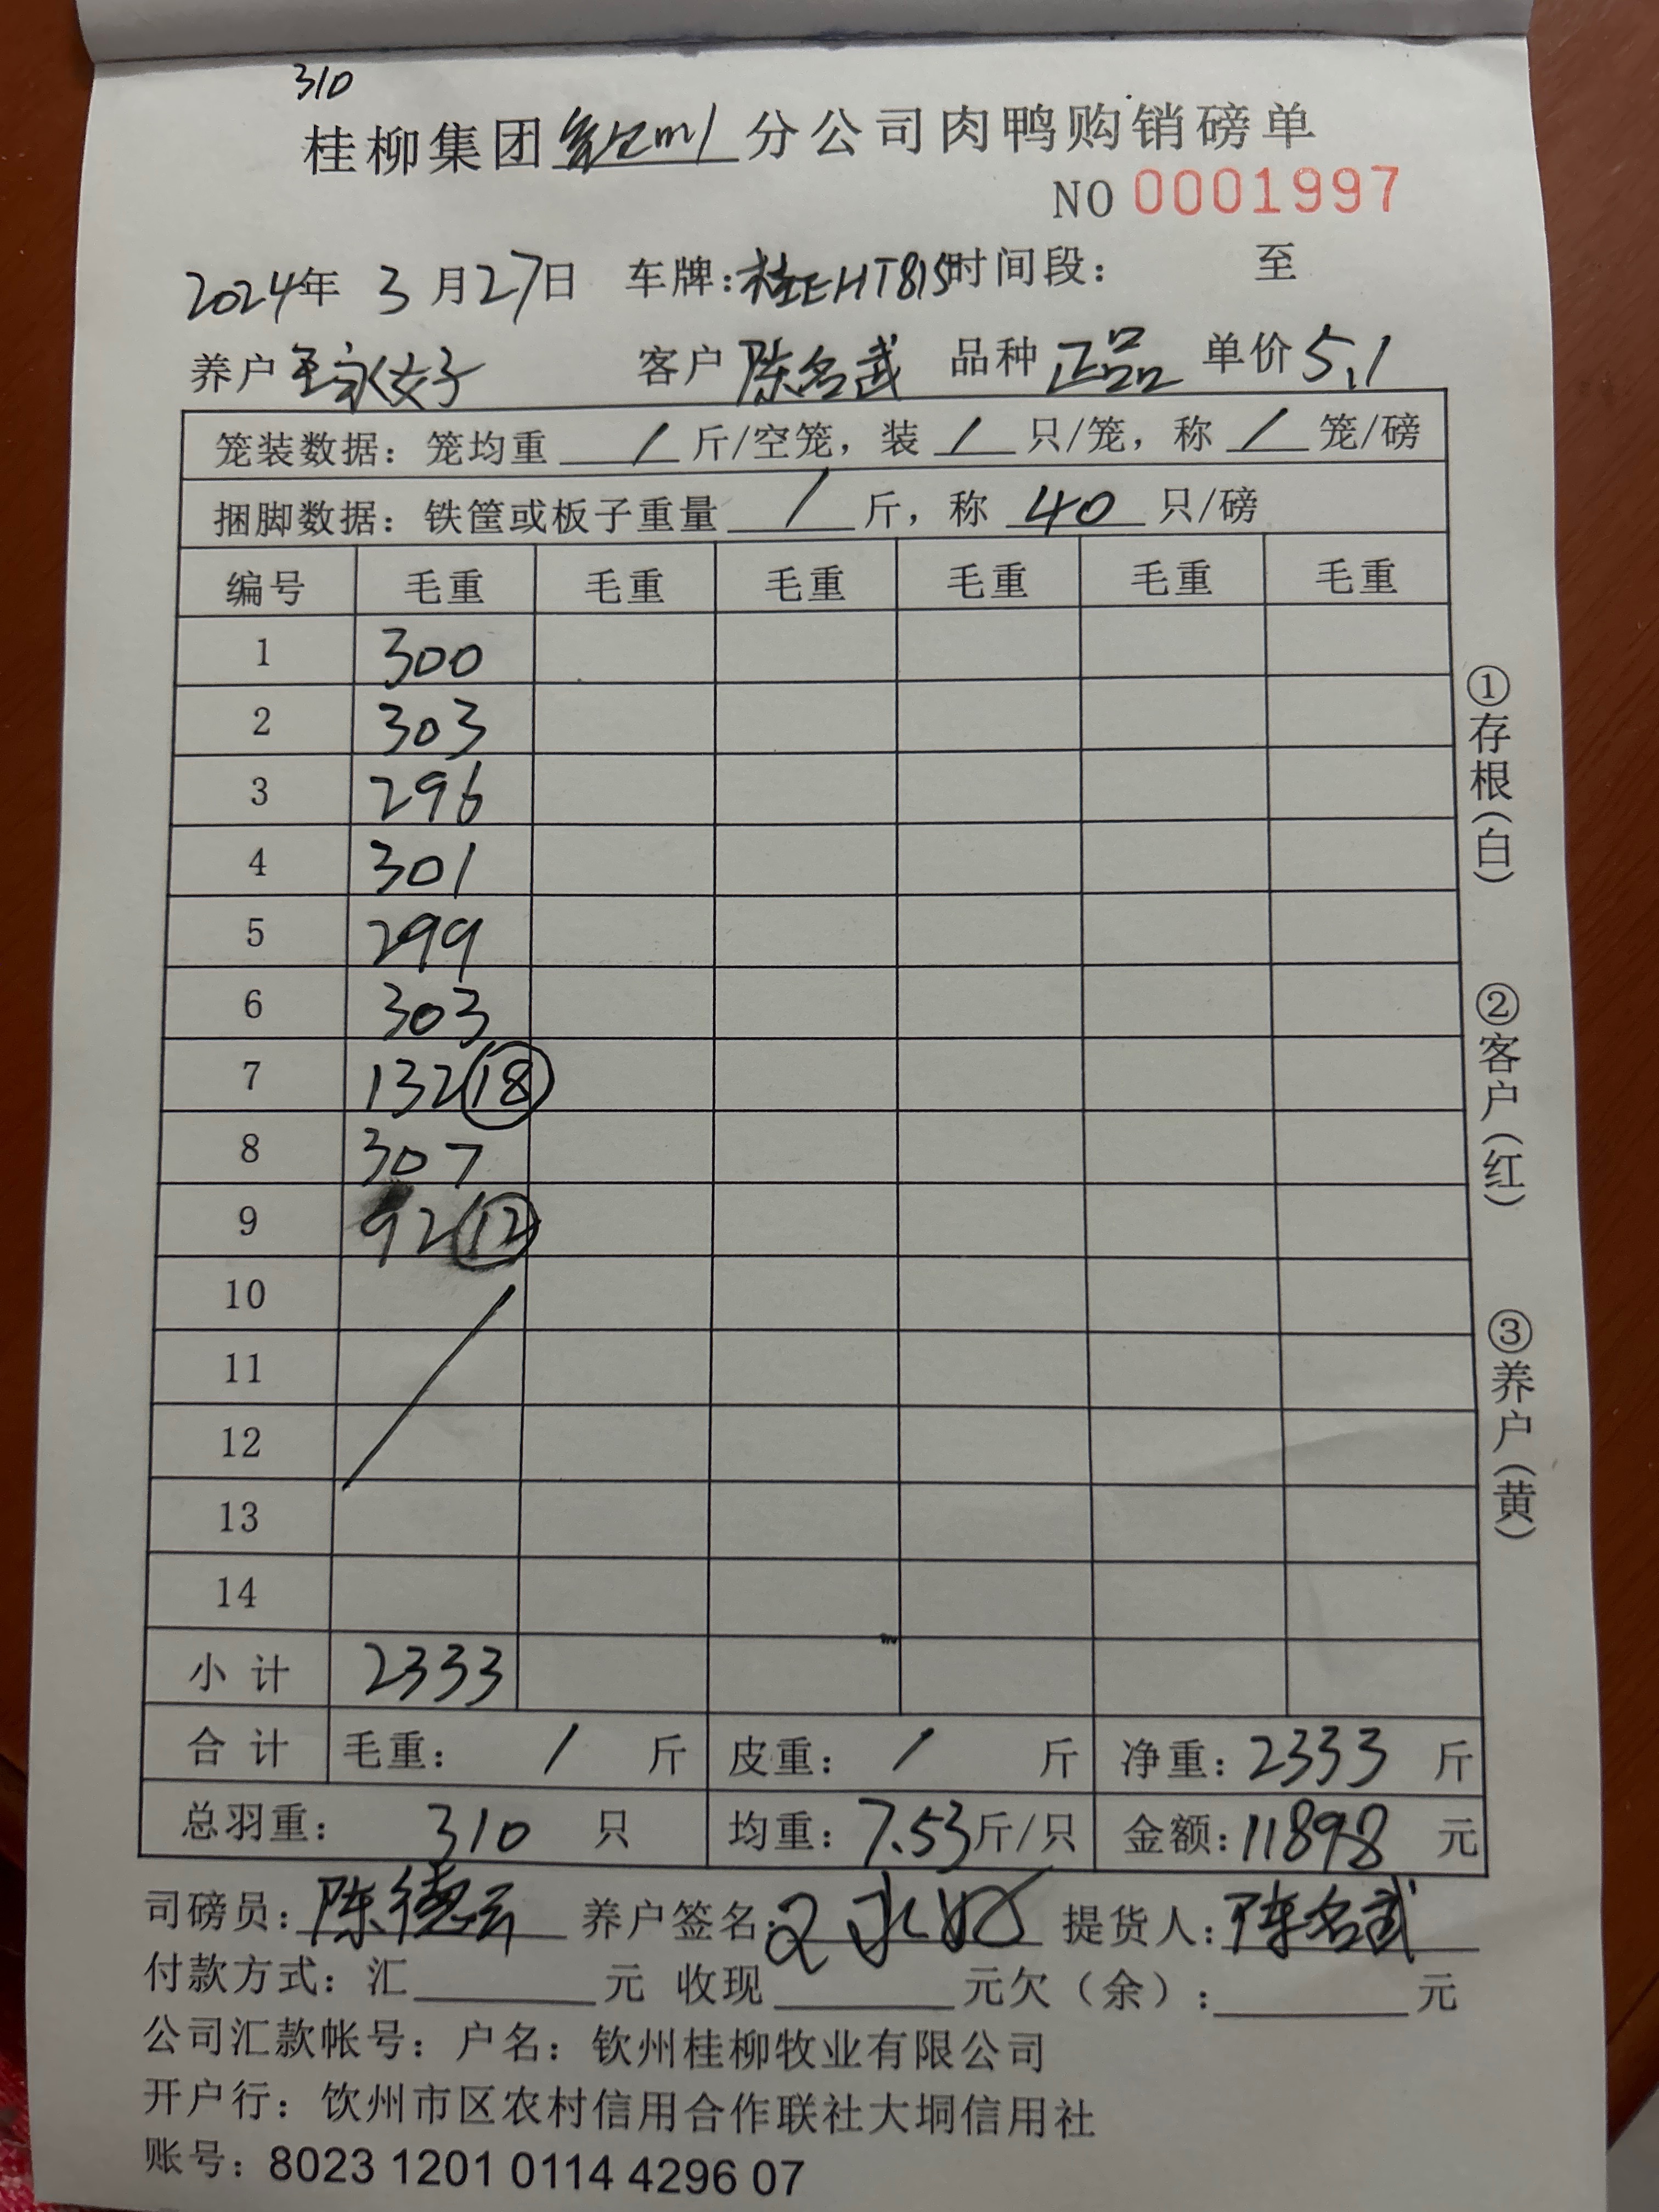 310
桂柳集团 分公司肉鸭购销磅单
NO 0001997
2024年 3月27日 车牌:桂EHT815时间段: 至
养户 客户 陈名武 品种 正品 单价 5.1
笼装数据: 笼均重 / 斤/空笼, 装 / 只/笼, 称 / 笼/磅
捆脚数据: 铁筐或板子重量 / 斤, 称 40 只/磅
编号 毛重 毛重 毛重 毛重 毛重 毛重
1 300
2 303
3 296
4 301
5 299
6 303
7 132 18
8 307
9 92 12
10
11
12
13
14
小计 2333
合计 毛重: / 斤 皮重: / 斤 净重: 2333 斤
总羽重: 310 只 均重: 7.53斤/只 金额: 11898 元
司磅员: 陈德云 养户签名: 提货人: 陈名武
付款方式: 汇 元 收现 元欠(余): 元
公司汇款帐号: 户名: 钦州桂柳牧业有限公司
开户行: 饮州市区农村信用合作联社大垌信用社
账号: 8023 1201 0114 4296 07
①存根(白)
②客户(红)
③养户(黄)